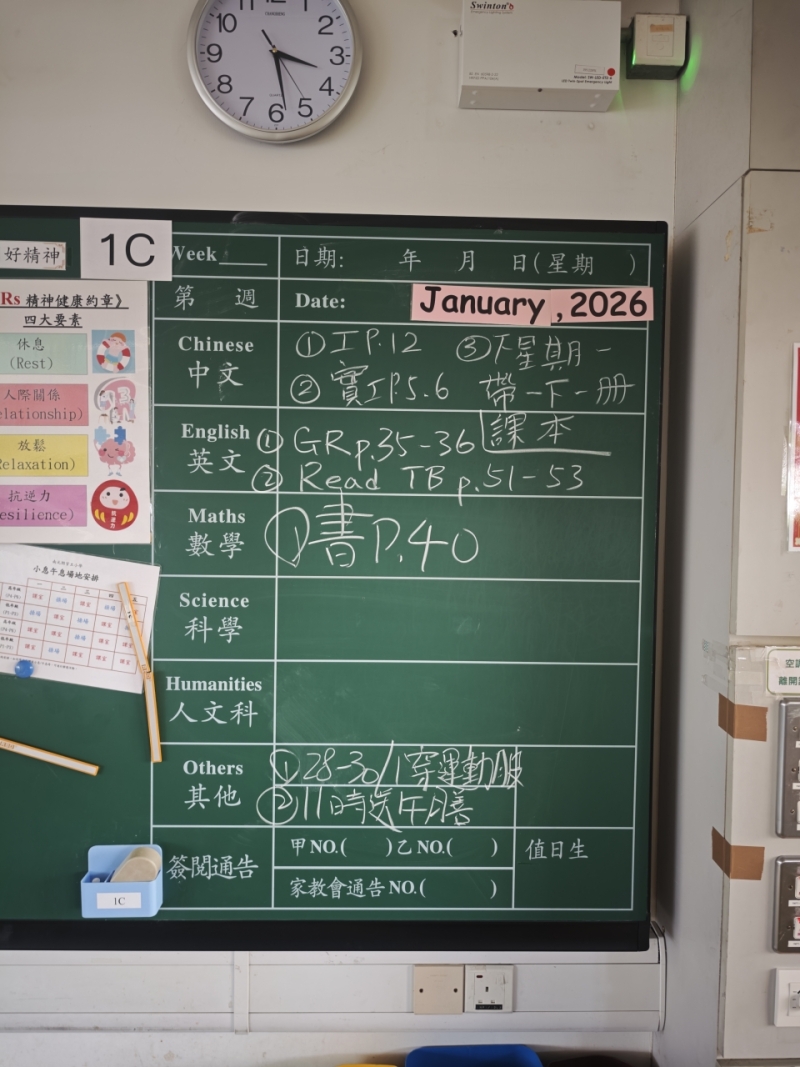 12
10
2
9
3
8
4
7
6
5
Swinton
好精神
1C
Week
日期: 年 月 日(星期 )
第 週
Date: January ,2026
Rs 精神健康約章》
四大要素
休息
(Rest)
人際關係
elationship)
放鬆
Relaxation)
抗逆力
esilience)
Chinese
中文
① 工P.12 ③下星期一
② 寶工P.5.6 帶一下一册
課本
English
英文
① GR p.35-36
② Read TB p.51-53
Maths
數學
① 書P.40
小息午息場地安排
Science
科學
Humanities
人文科
Others
其他
① 28-30/1穿運動服
② 11時送午膳
簽閱通告
甲NO.( )乙NO.( )
值日生
家教會通告NO.( )
1C
空調
離開